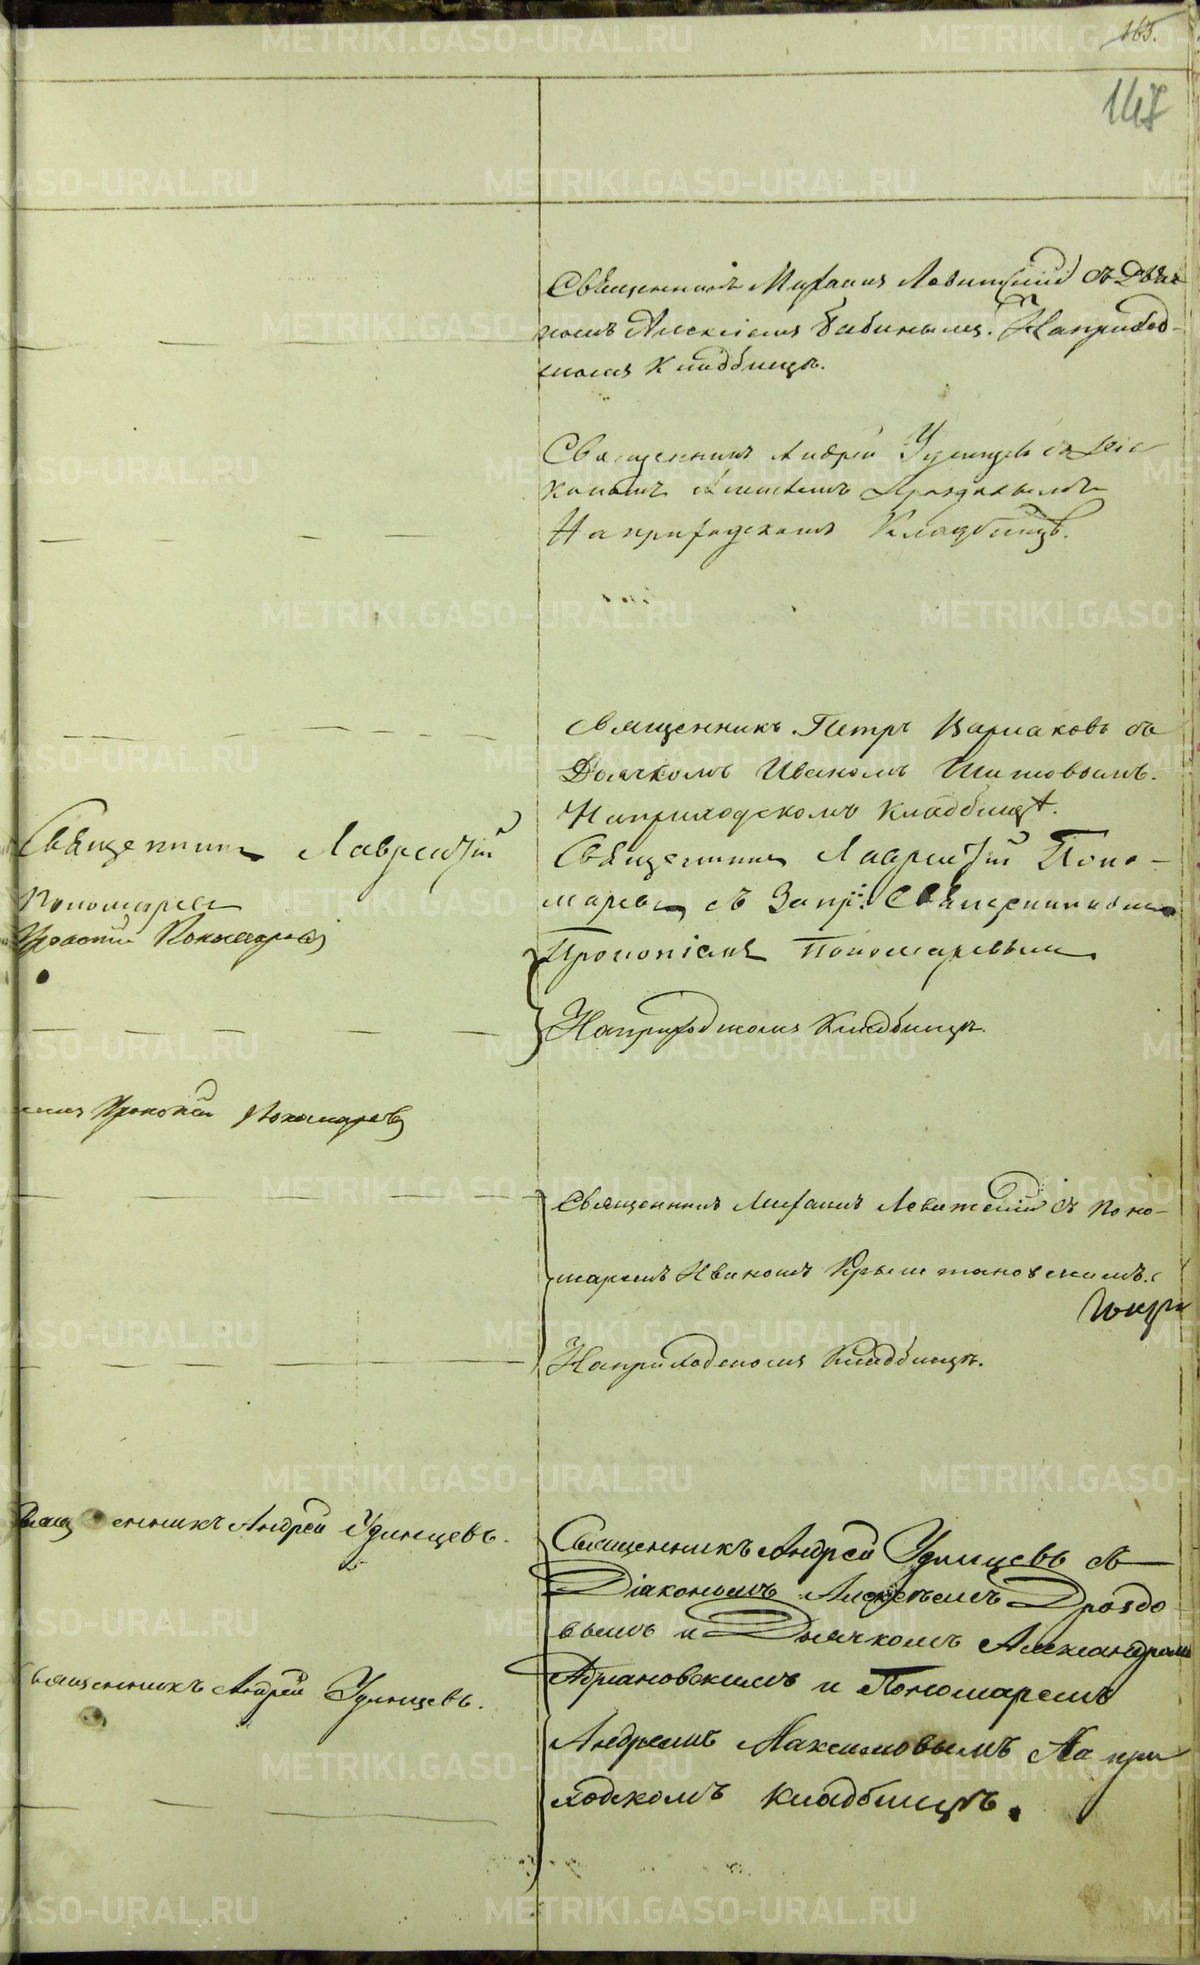 163.
147
Священникъ Михаилъ Левитскій съ Дьяч
комъ Алексіемъ Бабинымъ. На приход-
скомъ Кладбищѣ.
Священникъ Андрей Удинцевъ съ Діа
кономъ Алексѣемъ Дроздовымъ
На приходскомъ Кладбищѣ.
Священникъ Петръ съ
Дьячкомъ Иваномъ Шитовымъ.
На приходскомъ Кладбищѣ.
Священникъ Лаврентій
Пономаревъ
Прокопій Пономаревъ
Священникъ Лаврентій Поно-
маревъ съ Запр: Священникомъ
Прокопіемъ Пономаревымъ
На приходскомъ Кладбищѣ.
Прокопій Пономаревъ
Священникъ Михаилъ Левитскій съ Поно-
маремъ Иваномъ
На приходскомъ Кладбищѣ.
Священникъ Андрей Удинцевъ.
Священникъ Андрей Удинцевъ съ
Діакономъ Алексѣемъ Дроздо
вымъ и Дьячкомъ Александромъ
Адріановскимъ и Пономаремъ
Андреемъ Максимовымъ На при
ходскомъ кладбищѣ.
Священникъ Андрей Удинцевъ.
METRIKI.GASO-URAL.RU